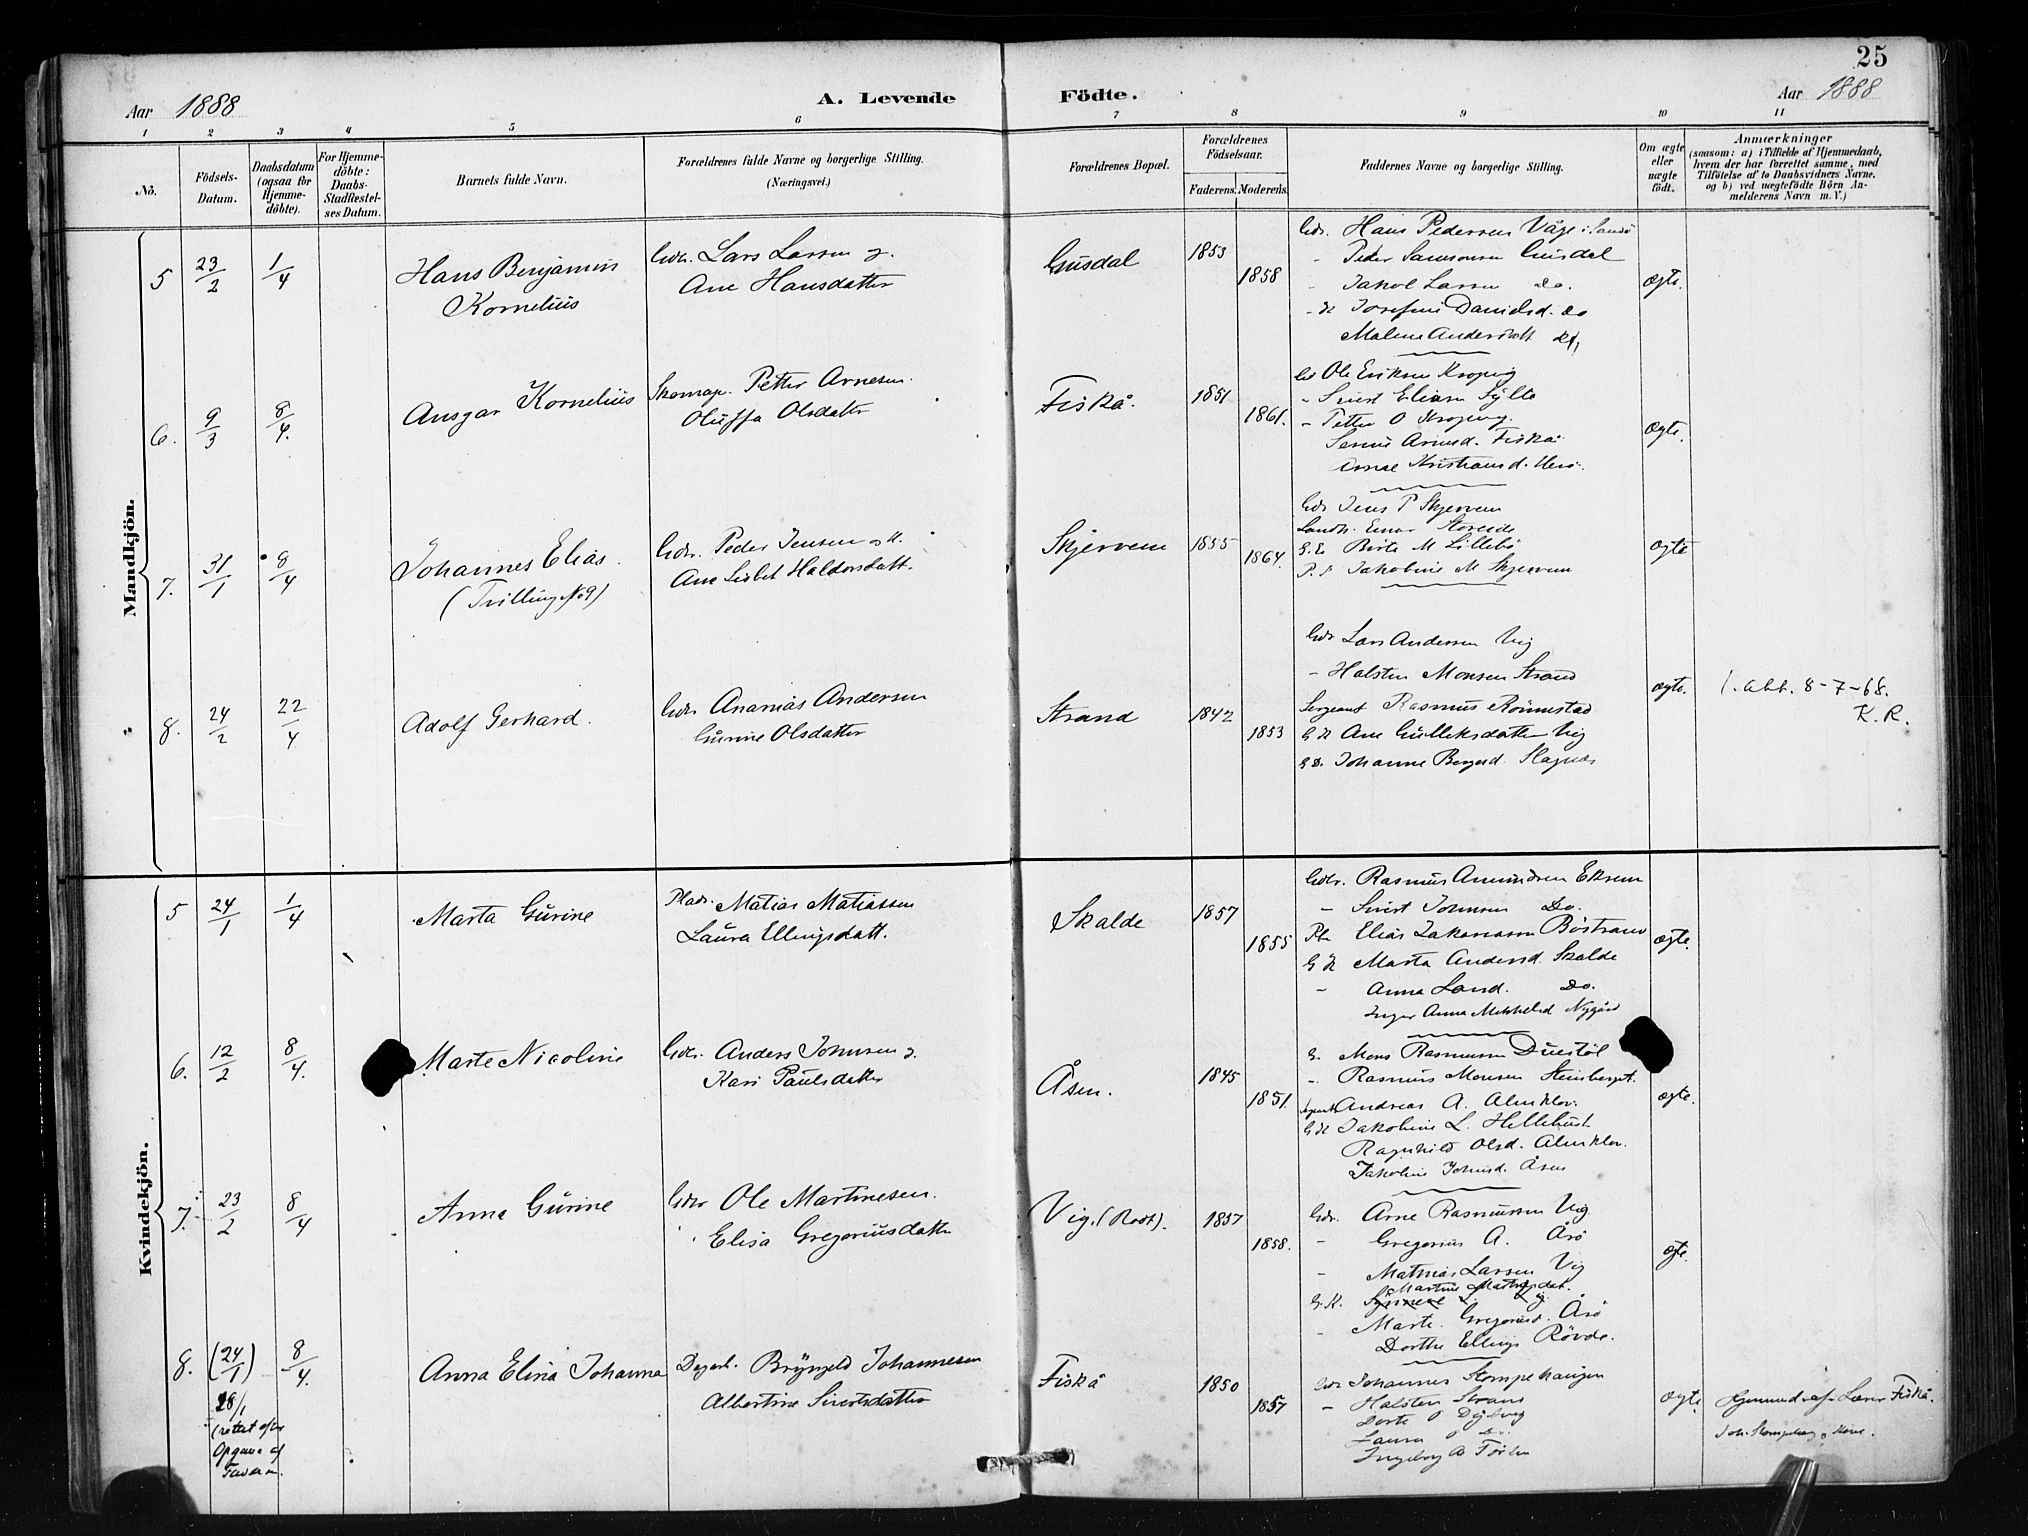 25
Aar 1888
A. Levende Födte.
Aar 1888
1 2 3 4 5 6 7 8 9 10 11
No.
Födsels-Datum.
Daabsdatum (ogsaa for Hjemme-döbte).
For Hjemme-döbte: Daabs-Stadfæstel-ses Datum.
Barnets fulde Navn.
Forældrenes fulde Navne og borgerlige Stilling.
(Næringsvei.)
Forældrenes Bopæl.
Forældrenes Födselsaar.
Faderens. Moderens.
Faddernes Navne og borgerlige Stilling.
Om ægte eller uægte födt.
Anmærkninger
(saasom: a) i Tilfælde af Hjemmedaab,
hvem der har forrettet samme, med
Tilföielse af to Daabsvidners Navne.
og b) ved uægtefödte Börn An-
melderens Navn m. V.)
Mandkjön.
5 23/2 1/4 Hans Benjamin
Kornelius
Gdr. Lars Larsen g.
Ane Hansdatter
Gusdal 1853
1858
Gdr. Hans Pedersen Våge i Sandö
- Peder Samsonsen Gusdal
- Jakob Larsen Do.
Josefine Danielsd. do
Malene Andersdatt
ægte.
6. 9/3 8/4. Ansgar Kornelius
Petter Arnesen.
Oluffa Olsdatter
Fiskå. 1851
1861.
Ole Eriksen
- Sivert Eliasen Sylte
- Petter O
Arnesd. Fiskå
ægte.
7. 31/1 8/4 Johannes Elias.
(Tvilling No 9)
Gdr. Peder Jensen og H.
Ane Lisbet Haldorsdatt.
Skjervem 1855
1864.
Gdr Jens P Skjervem
Landh. Einar
Birte M Lillebö
Jakobine M Skjervem
ægte
8. 24/2 22/4 Adolf Gerhard.
Gdr. Ananias Andersen
Gurine Olsdatter
Strand 1842
1853
Gdr Lars Andersen Vig
- Halsten Monsen Strand
Sergeant Rasmus Rönnestad
G K Ane Gulleksdatter Vig
G D. Johanne
ægte.
1. att. 8-7-68.
K. R.
Kvindekjön.
5 24/1 1/4 Marta Gurine
Plads. Matias Matiassen
Laura Ellingsdatt.
Skalde 1857
1855
Gdr. Rasmus Amundsen Eksem
- Sivert Johnsen Do.
Elias Zakariassen Böstrand
G K Marta Andersd. Skalde
- Anna Do.
Inger Anna Mikkelsd Nygård
ægte.
6. 12/2 8/4. Marte Nicoline
Gdr. Anders Johnsen g.
Kari Paulsdatter
Åsen. 1845
1851.
G. Mons Rasmussen Duestöl
- Rasmus Monsen Steinberget.
Andreas A. Almklov.
G K Jakobine L. Hellehust
Ragnhild Olsd. Almklov.
Jakobine Johnsd. Åsen
ægte.
7. 23/2 8/4 Anna Gurine
Gdr Ole Martinesen.
Elisa Gregoriusdatter
Vig. (Rovde). 1857
1858.
Gdr. Arne Rasmussen Vig
- Gregorius A. Årö
- Mathias Larsen Vig
Martine
G. K.
- Marte Gregoriusd. Årö
Dorthe Ellings Rövde.
ægte.
8. (24/1) 8/4. Anna Elina Johanna
28/1
(rettet efter
Opgave af
Faderen.
Dagarb. Brynjeld Johannesen
Albertine Sivertsdatter
Fiskå 1850
1857
Gdr Johannes Stompehaugen
- Halsten Strand
Dorte O
Laura O Do.
Ingeborg A
ægte.
Hjemmed. af Lærer Fiskå.